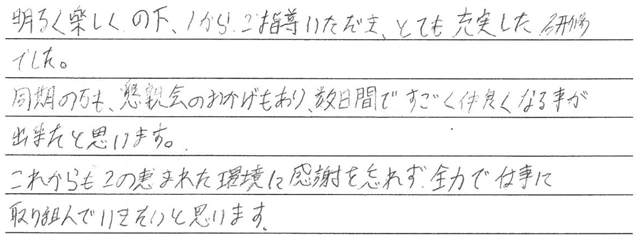 明るく楽しくの下、1から、ご指導いただき、とても充実した研修
でした。
同期の方も、懇親会のおかげもあり、数日間ですごく仲良くなる事が
出来たと思います。
これからもこの恵まれた環境に感謝を忘れず、全力で仕事に
取り組んでいきたいと思います。